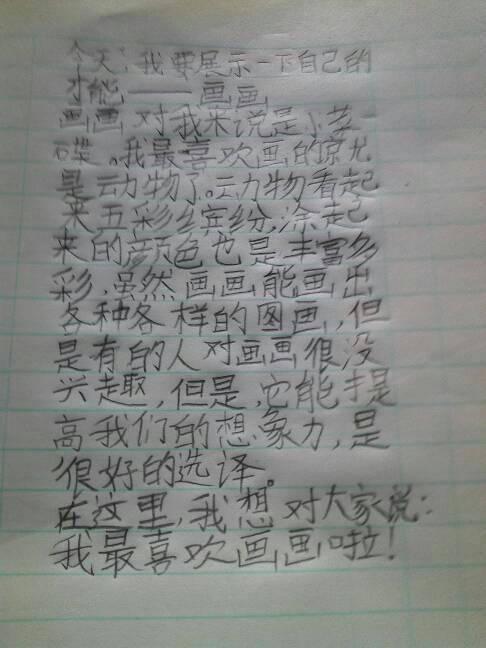 今天,我要展示一下自己的
才能——画画
画画对我来说是小菜一
碟。我最喜欢画的
是动物了。动物看起
来五彩缤纷,涂起
来的颜色也是丰富多
彩,虽然画画能画出
各种各样的图画,但
是有的人对画画很没
兴趣,但是,它能提
高我们的想象力,是
很好的选译。
在这里,我想对大家说:
我最喜欢画画啦!